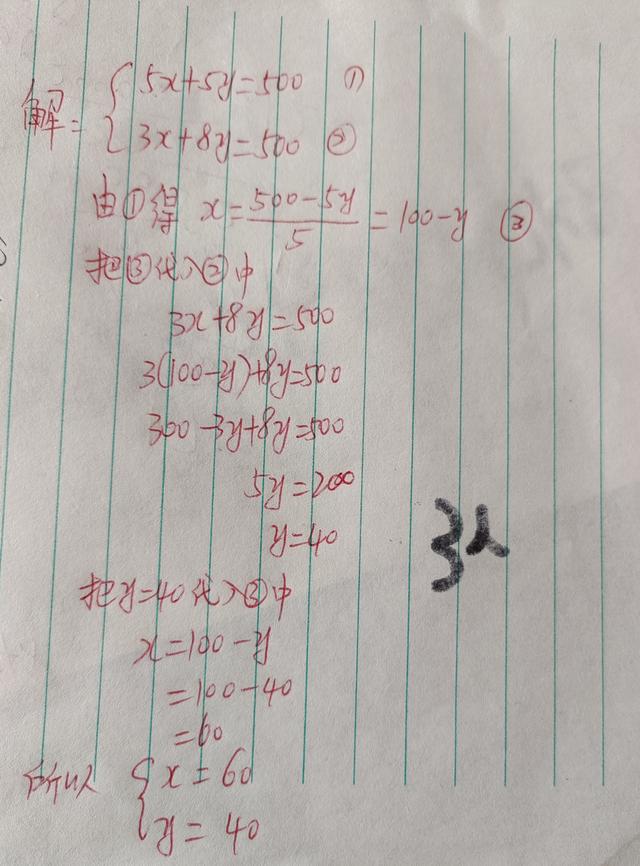 解: { 5x+5y=500 ①
3x+8y=500 ②
由①得 x=(500-5y)/5=100-y ③
把③代入②中
3x+8y=500
3(100-y)+8y=500
300-3y+8y=500
5y=200
y=40
把y=40代入③中
x=100-y
=100-40
=60
所以 { x=60
y=40